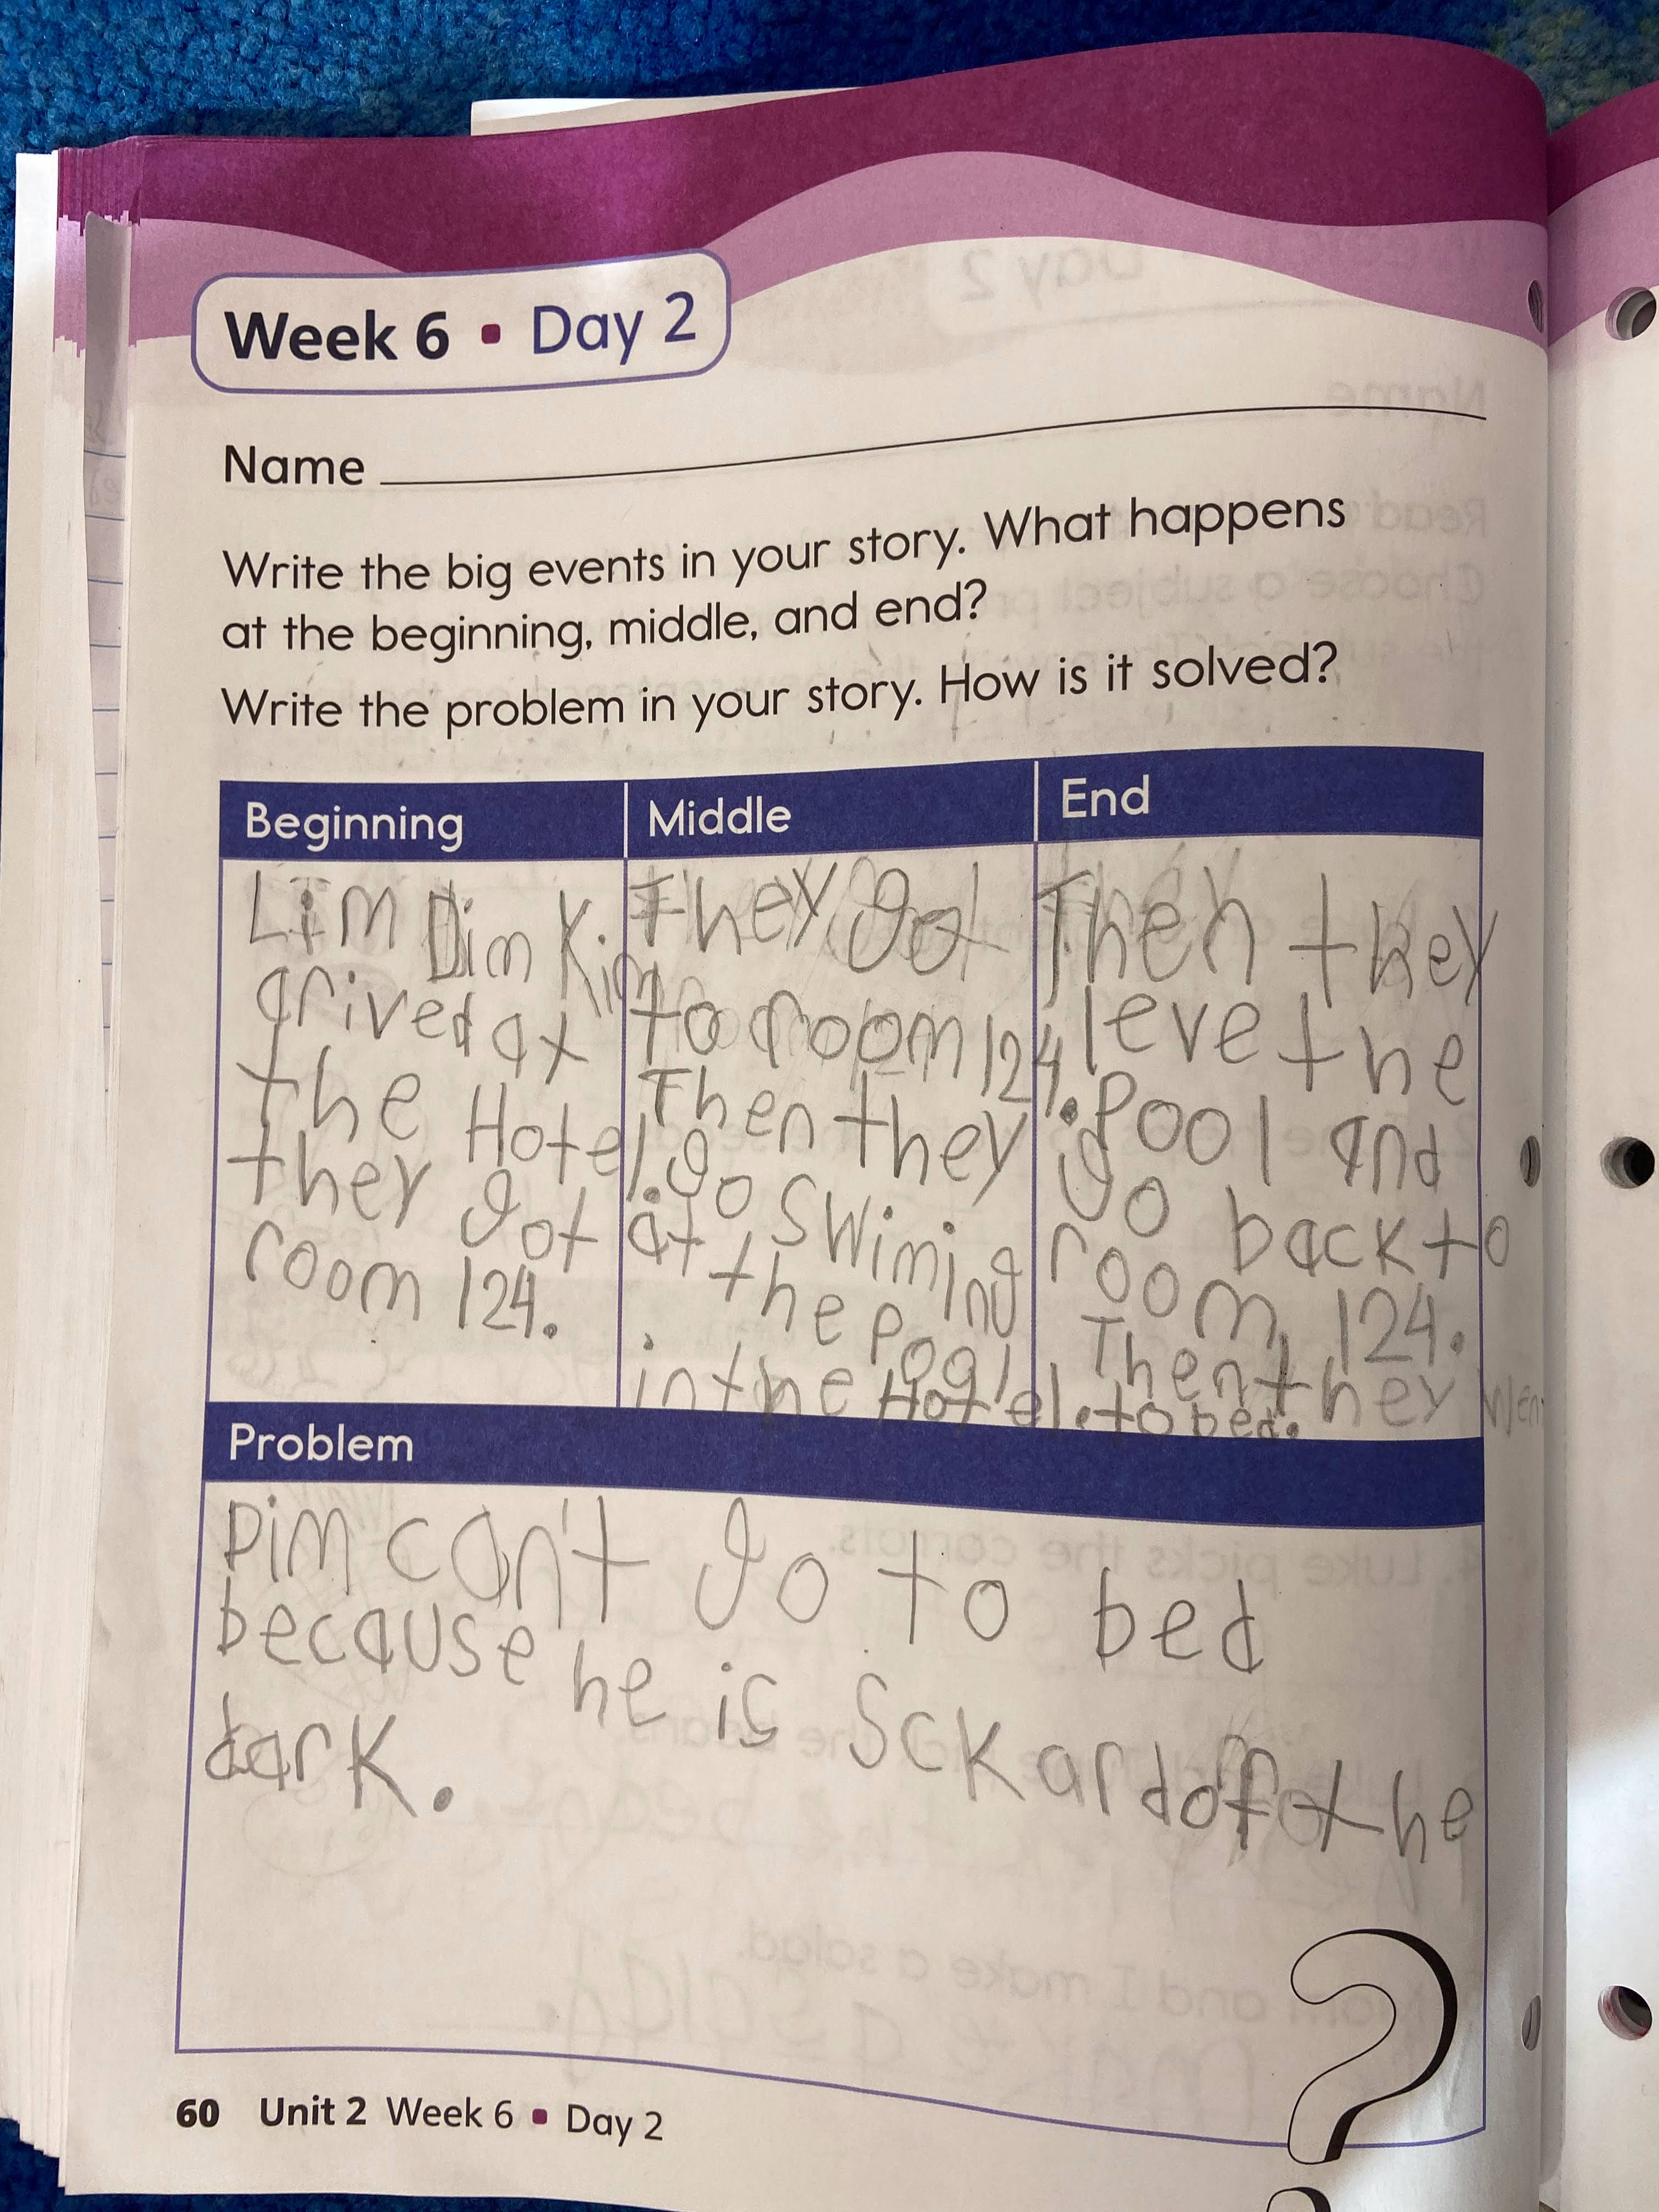 Week 6 • Day 2
Name
Write the big events in your story. What happens
at the beginning, middle, and end?
Write the problem in your story. How is it solved?
Beginning
Lim Dim Kim
arived at
the Hotel.
they got
room 124.
Middle
They got
to room 124.
Then they
go swiming
at the pool
in the Hotel.
End
Then they
leve the
pool and
go back to
room 124.
Then they wen
to bed.
Problem
Dim can't go to bed
because he is sckard of the
dark.
?
60 Unit 2 Week 6 • Day 2